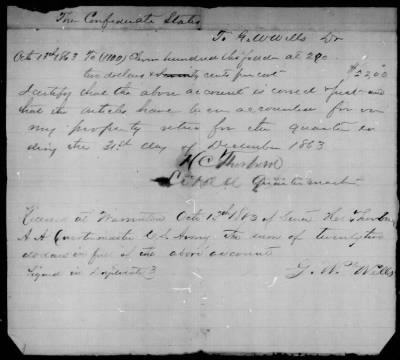 The Confederate States
To G. W. Wells Dr
Oct 13th 1863 To (1100) Eleven hundred lbs fodder at 2.00
two dollars & cents per cent $22.00
I certify that the above account is correct & just and
that the articles have been accounted for in
my property return for the quarter en
ding the 31st day of December 1863
H C
Quartermaster
Received at Warrenton Oct 13th 1863 of
A A Quartermaster C.S. Army the sum of twenty two
dollars in full of the above account
Signed in Duplicate
G. W. Wells